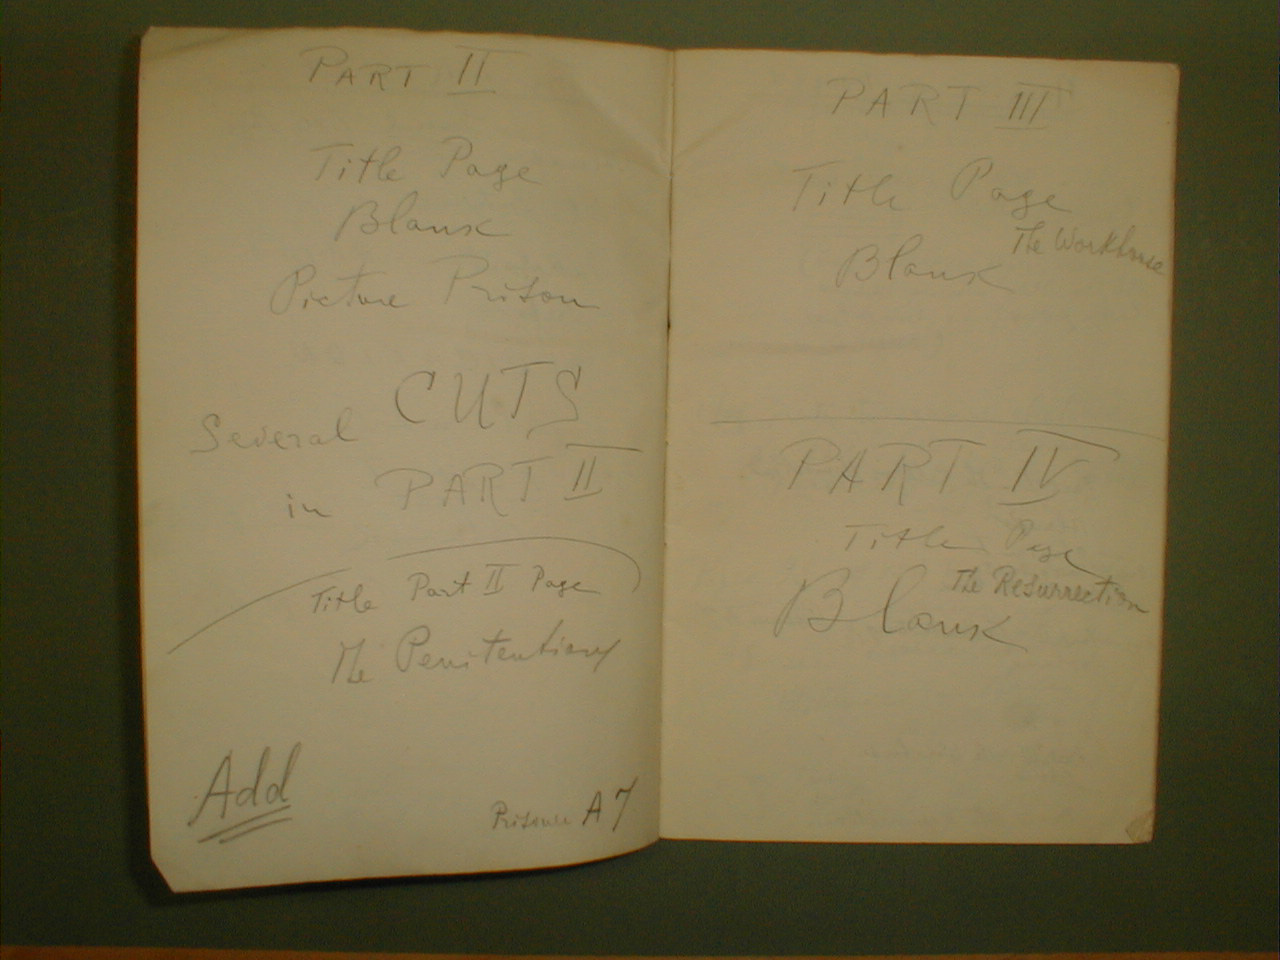 PART II
Title Page
Blank
Picture Prison
Several CUTS
in PART II
Title Part II Page
The Penitentiary
Add
Prisoner A7
PART III
Title Page
The Workhouse
Blank
PART IV
Title Page
The Resurrection
Blank